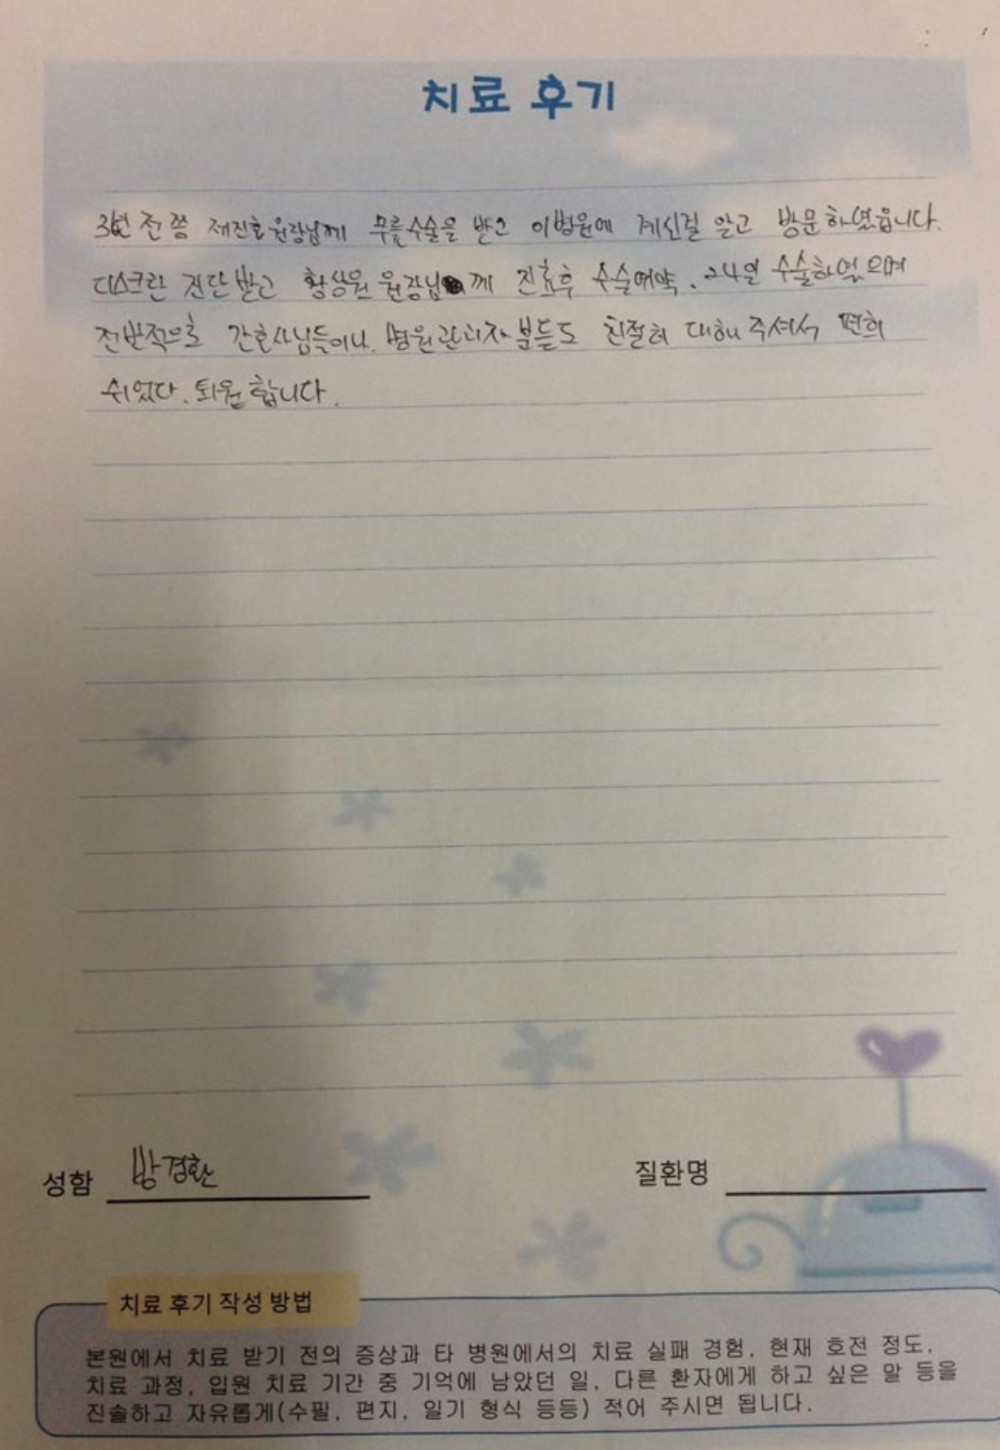 치료 후기
3년 전 쯤 제진호 원장님께 무릎수술을 받고 이병원에 계신걸 알고 방문하였읍니다.
디스크란 진단받고 황상원 원장님께 진료후 수술예약. 24일 수술하였으며
전반적으로 간호사님들이나 병원관리자 분들도 친절히 대해 주셔서 편히
쉬었다. 퇴원합니다.
성함 방경환 질환명
치료 후기 작성 방법
본원에서 치료 받기 전의 증상과 타 병원에서의 치료 실패 경험, 현재 호전 정도,
치료 과정, 입원 치료 기간 중 기억에 남았던 일, 다른 환자에게 하고 싶은 말 등을
진솔하고 자유롭게(수필, 편지, 일기 형식 등등) 적어 주시면 됩니다.